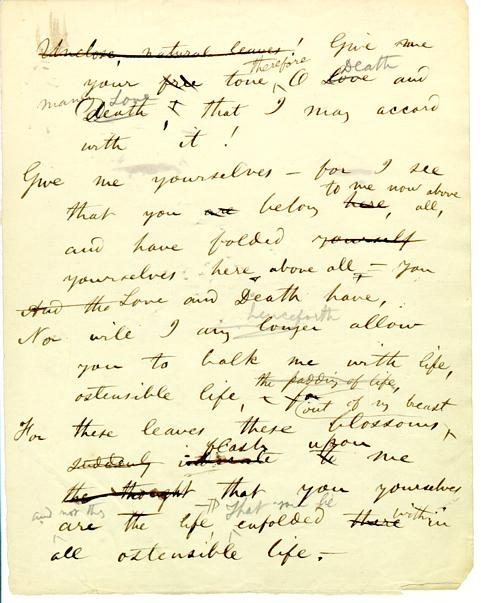 Unclose, natural leaves! Give me
therefore Death
your free tone, O Love and
man Love
Death, that I may accord
with it!
Give me yourselves — for I see
to me now above
that you are belong here, all,
and have folded yourself
yourselves here, above all, — you
And the Love and Death have,
henceforth
Nor will I any longer allow
you to balk me with life,
the padding of life,
ostensible life, for
(out of my breast
For these leaves these blossoms,
cast upon
suddenly to me
the thought that you yourselves
and not this that may be
are the life, enfolded there within
all ostensible life. —